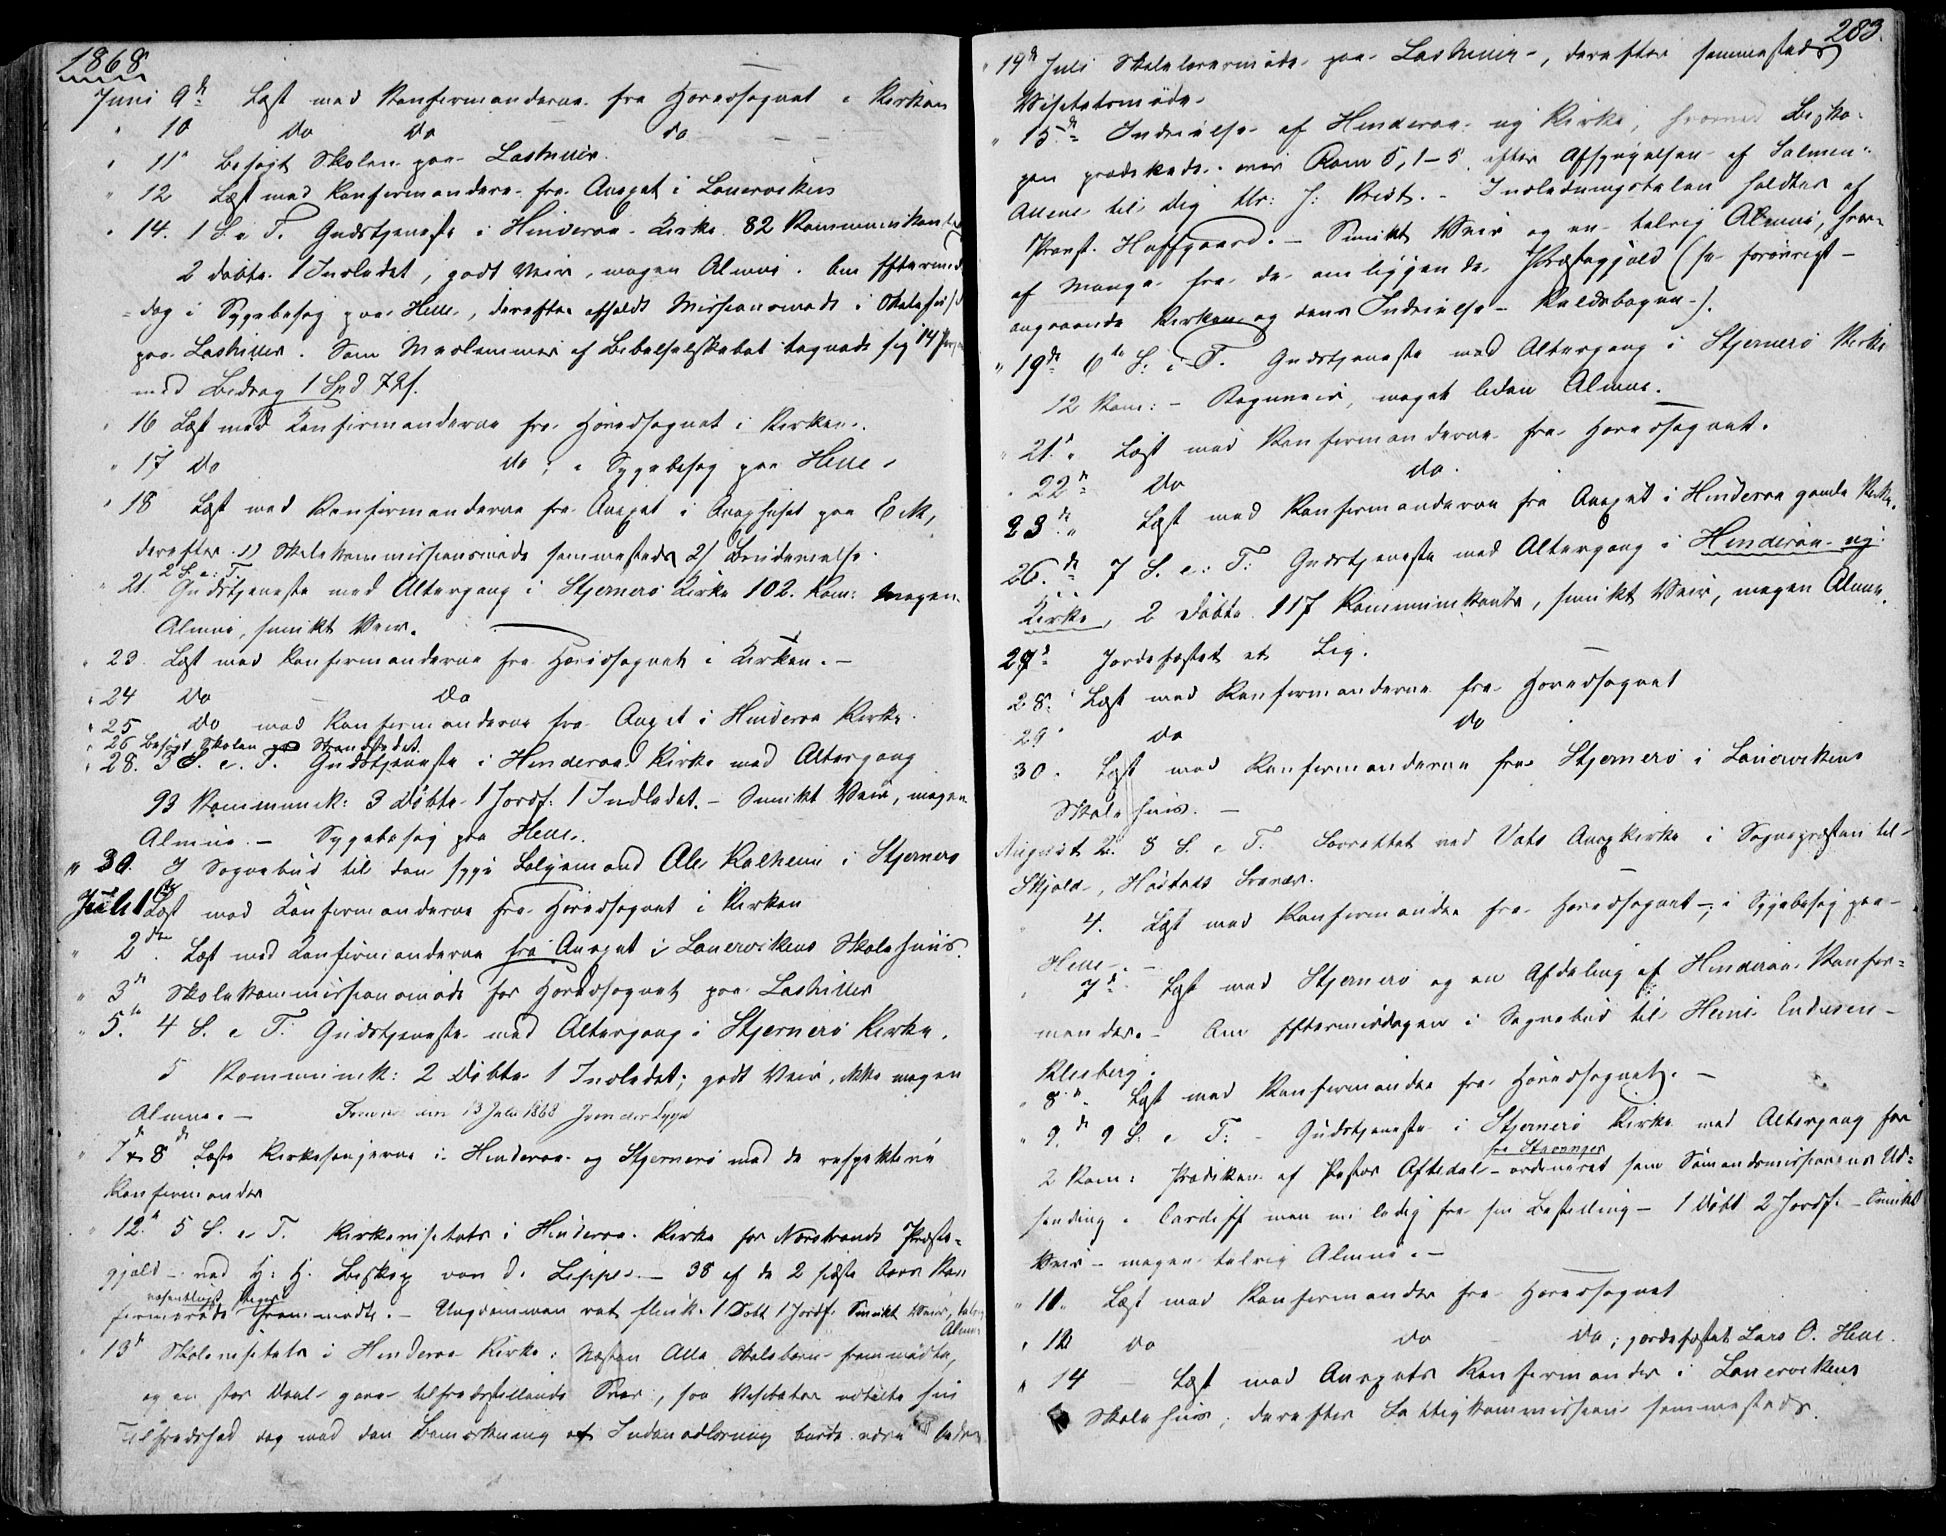 1868
Juni 9d Læst med Konfirmanderne fra Hovedsognet i Kirken
" 10 do do do
" 11 Besøgt Skolen paa Lashuus
" 12 Læst med Konfirmanderne fra Annexet i Lonevikens
" 14. 1 S. e T. Gudstjeneste i Hinderaa Kirke. 82 Kommunikanter
2 døbte. 1 Indledet, godt Veir, megen Almue. Om Eftermid-
dag i Sygebesøg paa Helle, derefter afholdt Missionsmøde i Skolehuset
paa Lashuus. Som Medlemmer af Bibelselskabet tegnede sig 14
med Bidrag 1 Spd 72 s.
" 16 Læst med Konfirmanderne fra Hovedsognet i Kirken.
" 17 do do; i Sygebesøg paa Helle
" 18 Læst med Konfirmanderne fra Annexet i paa Eik,
derefter 1) Skolekommissionsmøde sammesteds 2) Brudevielse.
2 S. e: T.
" 21. Gudstjeneste med Altergang i Stjernerø Kirke 102. Kom: megen
Almue, smukt Veir.
" 23. Læst med Konfirmanderne fra Hovedsognet i Kirken. –
" 24 do – do
" 25 do med Konfirmanderne fra Anxet i Hinderaa Kirke.
" 26 Besøgt Skolen paa Strandstedet.
" 28. 3 S. e. T. Gudstjeneste i Hinderaa Kirke med Altergang
93 Kommunik: 3 Døbte 1 Jordf: 1 Indledet. – Smukt Veir, megen
Almue. – Sygebesøg paa Helle.
" 30. I Sognebud til den syge Ole Kalheim i Stjernerø
Juli 1ste Læst med Konfirmanderne fra Hovedsognet i Kirken
" 2den. Læst med Konfirmanderne fra Annexet i Lonevikens Skolehuus.
" 3die Skolekommissionsmøde for Hovedsognet paa Lashuus
" 5te. 4 S. e T: Gudstjeneste med Altergang i Stjernerø Kirke.
5 Kommunik: 2 Døbte 1 Indledet; godt Veir, ikke megen
Almue. – den 13 Juli 1868
" 7 & 8de Læste Kirkesangerne i Hinderaa og Stjernerø med de respektive
Konfirmander
" 12te 5 S. e T. Kirkevisitats i Hinderaa Kirke for Nærstrands Præste-
gjeld – ved H: H. Biskop von d. Lippe. – 38 af de 2 sidste Aars Kon
firmerede væsentligst Piger fremmødte. – Ungdommen ret flink. 1 Døbt 1 Jordf: Smukt Veir, talrig
Almue
" 13de Skolevisitats i Hinderaa Kirke: Næsten Alle Skolebørn fremmødte,
og en stor Deel gave tilfredsstillende Svar, saa Visitator udtalte sin
Tilfredshed dog med den Bemærkning at Indenadlæsning burde være bedre
283.
" 14de Juli Skolelærermøde paa Lashuus, derefter sammesteds
Visitatsmøde.
" 15de Indvielse af Hinderaa ny Kirke, hvorved Bisko-
pen prædikede over Rom 5, 1–5 efter Afsyngelsen af Salmen:
Allene til dig Hr: J: Krist. – Indledningstalen holdtes af
Provst Hoffgaard. – Smukt Veir og en talrig Almue, hvor-
af Mange fra de omliggende Præstegjeld (se forøvrigt –
angaaende Kirken og dens Indvielse – Kaldsbogen).
" 19de 6te S: e T. Gudstjeneste med Altergang i Stjernerø Kirke
12 Kom: – Regnveir, meget liden Almue.
" 21. " Læst med Konfirmanderne fra Hovedsognet.
" 22de do do.
23de " Læst med Konfirmanderne fra Annexet i Hinderaa gamle Kirke.
26.de 7 S. e: T: Gudstjeneste med Altergang i Hinderaa ny
Kirke, 2 Døbte 117 Kommunikanter, smukt Veir, megen Almue.
27d Jordefæstet et Lig.
28. Læst med Konfirmanderne fra Hovedsognet
29 do do
30. Læst med Konfirmanderne fra Stjernerø i Lonevikens
Skolehuus. –
August 2. 8 S. e T. Forrettet ved Vats Anxkirke i Sognepræsten til
Skjold, Fravær.
" 4. Læst med Konfirmander fra Hovedsognet –; i Sygebesøg paa
Helle. –
" 7d Læst med Stjernerø og en Afdeling af Hinderaa Konfir-
mander. – Om Eftermiddagen i Sognebud til Endresen –
Klesberg.
" 8de. Læst med Konfirmander fra Hovedsognet. –
" 9.de 9 S: e T: – Gudstjeneste i Stjernerø Kirke med Altergang for
2 Kom: Prædiken af Pastor Oftedal – fra Stavanger ordineret som Sømandsmissionens Ud-
sending i Cardiff men nu ledig fra sin Bestilling – 1 Døbt 2 Jordf. – Smukt
Veir – megen talrig Almue. –
" 11. Læst med Konfirmander fra Hovedsognet
" 12 do do – do; jordefæstet Lars O. Helle.
" 14 – Læst med Annexets Konfirmander i Lonevikens
Skolehuus, derefter Fattigkommission sammesteds.